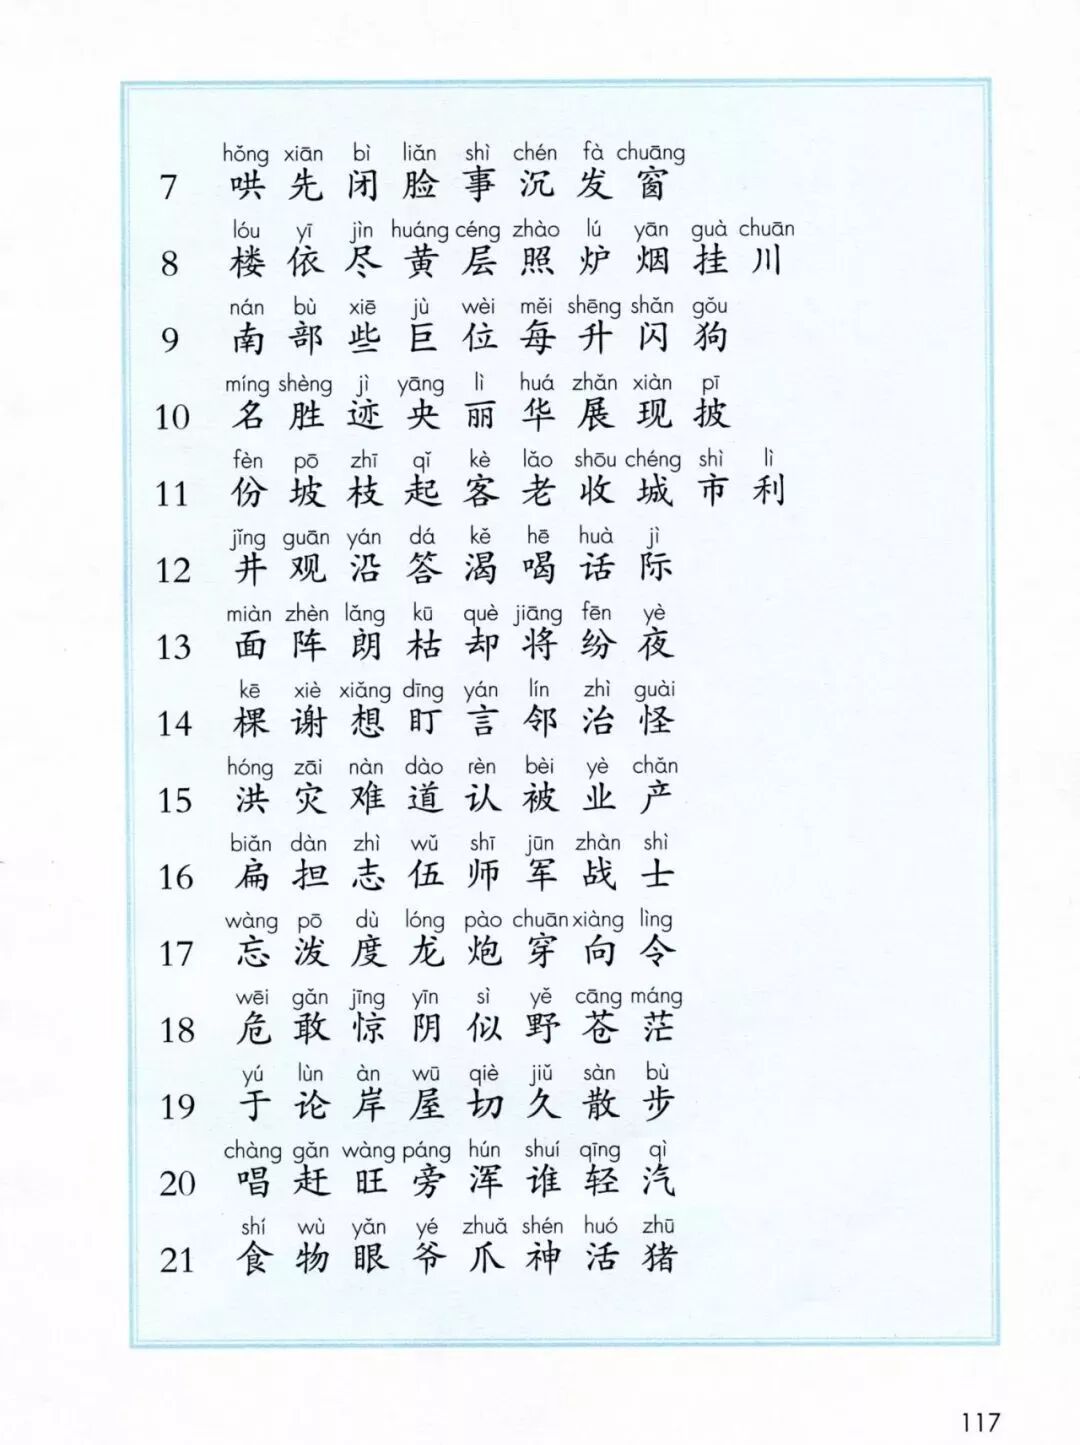 hǒng xiān bì liǎn shì chén fà chuāng
7 哄 先 闭 脸 事 沉 发 窗
lóu yī jìn huáng céng zhào lú yān guà chuān
8 楼 依 尽 黄 层 照 炉 烟 挂 川
nán bù xiē jù wèi měi shēng shǎn gǒu
9 南 部 些 巨 位 每 升 闪 狗
míng shèng jì yāng lì huá zhǎn xiàn pī
10 名 胜 迹 央 丽 华 展 现 披
fèn pō zhī qǐ kè lǎo shōu chéng shì lì
11 份 坡 枝 起 客 老 收 城 市 利
jǐng guān yán dá kě hē huà jì
12 井 观 沿 答 渴 喝 话 际
miàn zhèn lǎng kū què jiāng fēn yè
13 面 阵 朗 枯 却 将 纷 夜
kē xiè xiǎng dīng yán lín zhì guài
14 棵 谢 想 盯 言 邻 治 怪
hóng zāi nàn dào rèn bèi yè chǎn
15 洪 灾 难 道 认 被 业 产
biǎn dàn zhì wǔ shī jūn zhàn shì
16 扁 担 志 伍 师 军 战 士
wàng pō dù lóng pào chuān xiàng lìng
17 忘 泼 度 龙 炮 穿 向 令
wēi gǎn jīng yīn sì yě cāng máng
18 危 敢 惊 阴 似 野 苍 茫
yú lùn àn wū qiè jiǔ sàn bù
19 于 论 岸 屋 切 久 散 步
chàng gǎn wàng páng hún shuí qīng qì
20 唱 赶 旺 旁 浑 谁 轻 汽
shí wù yǎn yé zhuǎ shén huó zhū
21 食 物 眼 爷 爪 神 活 猪
117